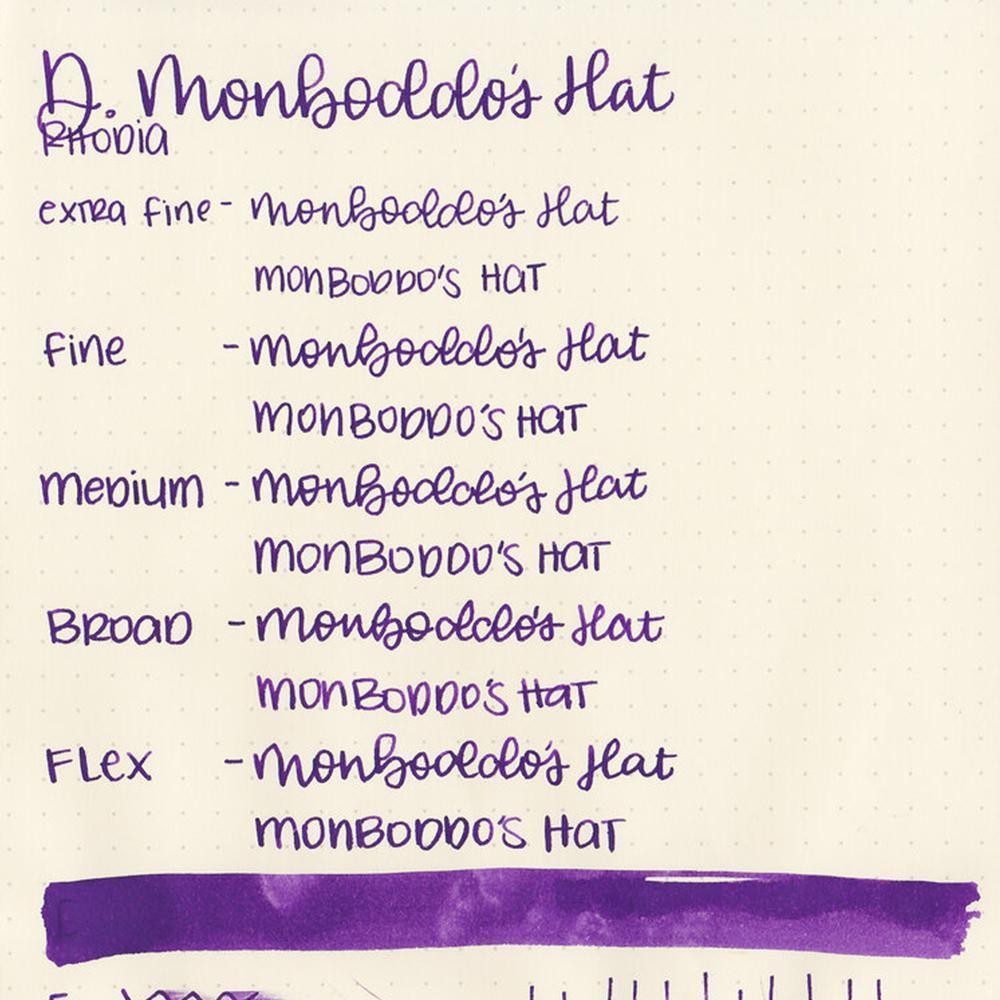 D. Monboddo's Hat
RHODIA
extra fine - Monboddo's Hat
MONBODDO'S HAT
fine - Monboddo's Hat
MONBODDO'S HAT
Medium - Monboddo's Hat
MONBODDO'S HAT
BROAD - Monboddo's Hat
MONBODDO'S HAT
FLex - Monboddo's Hat
MONBODDO'S HAT